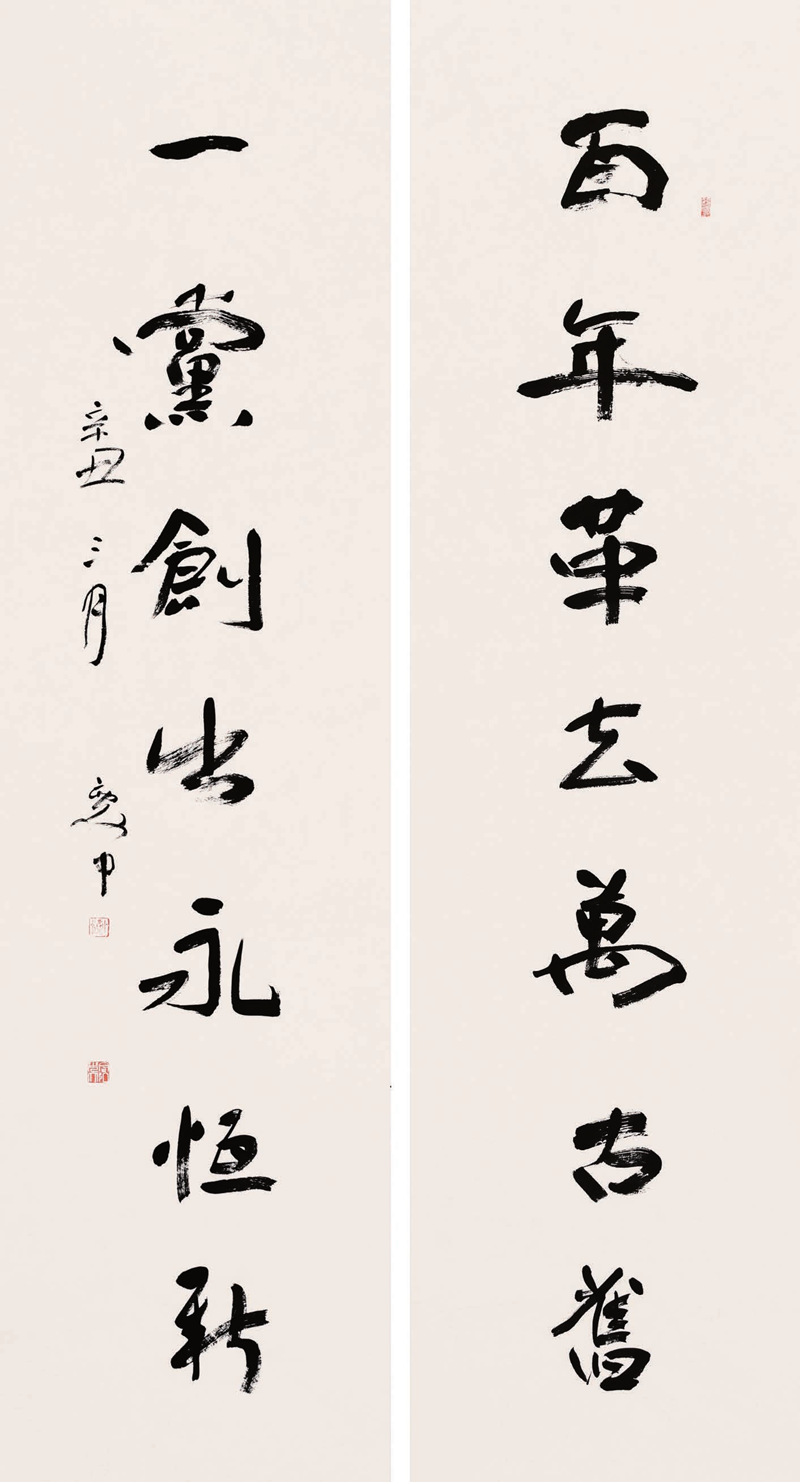 百年革去萬古舊
一黨創出永恒新
辛丑三月